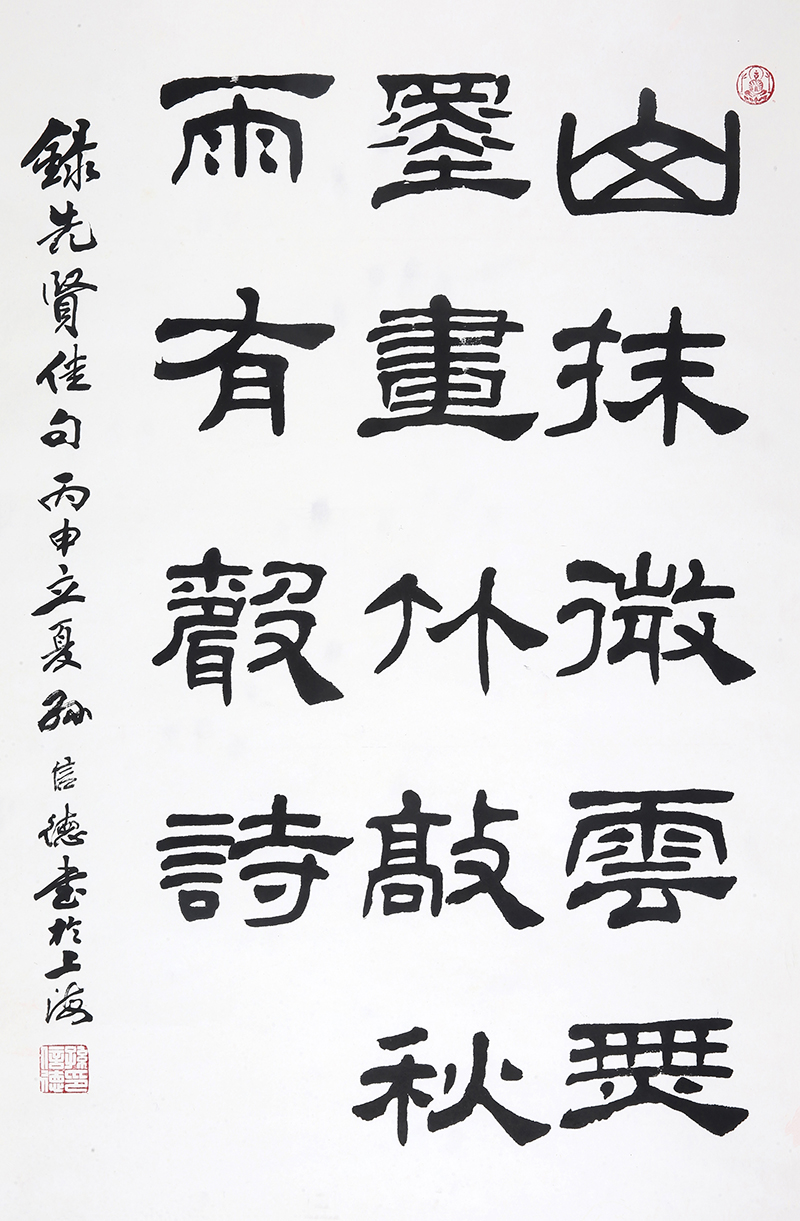 山抹微雲無
墨畫竹敲秋
雨有聲詩
錄先賢佳句丙申立夏孫信德書於上海
孫信德印